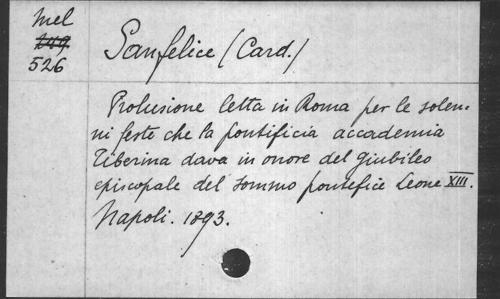 Mel
249
526
Sanfelice (Card.)
Prolusione letta in Roma per le solen-
ni feste che la pontificia accademia
Tiberina dava in onore del Giubileo
episcopale del sommo pontefice Leone XIII.
Napoli. 1893.